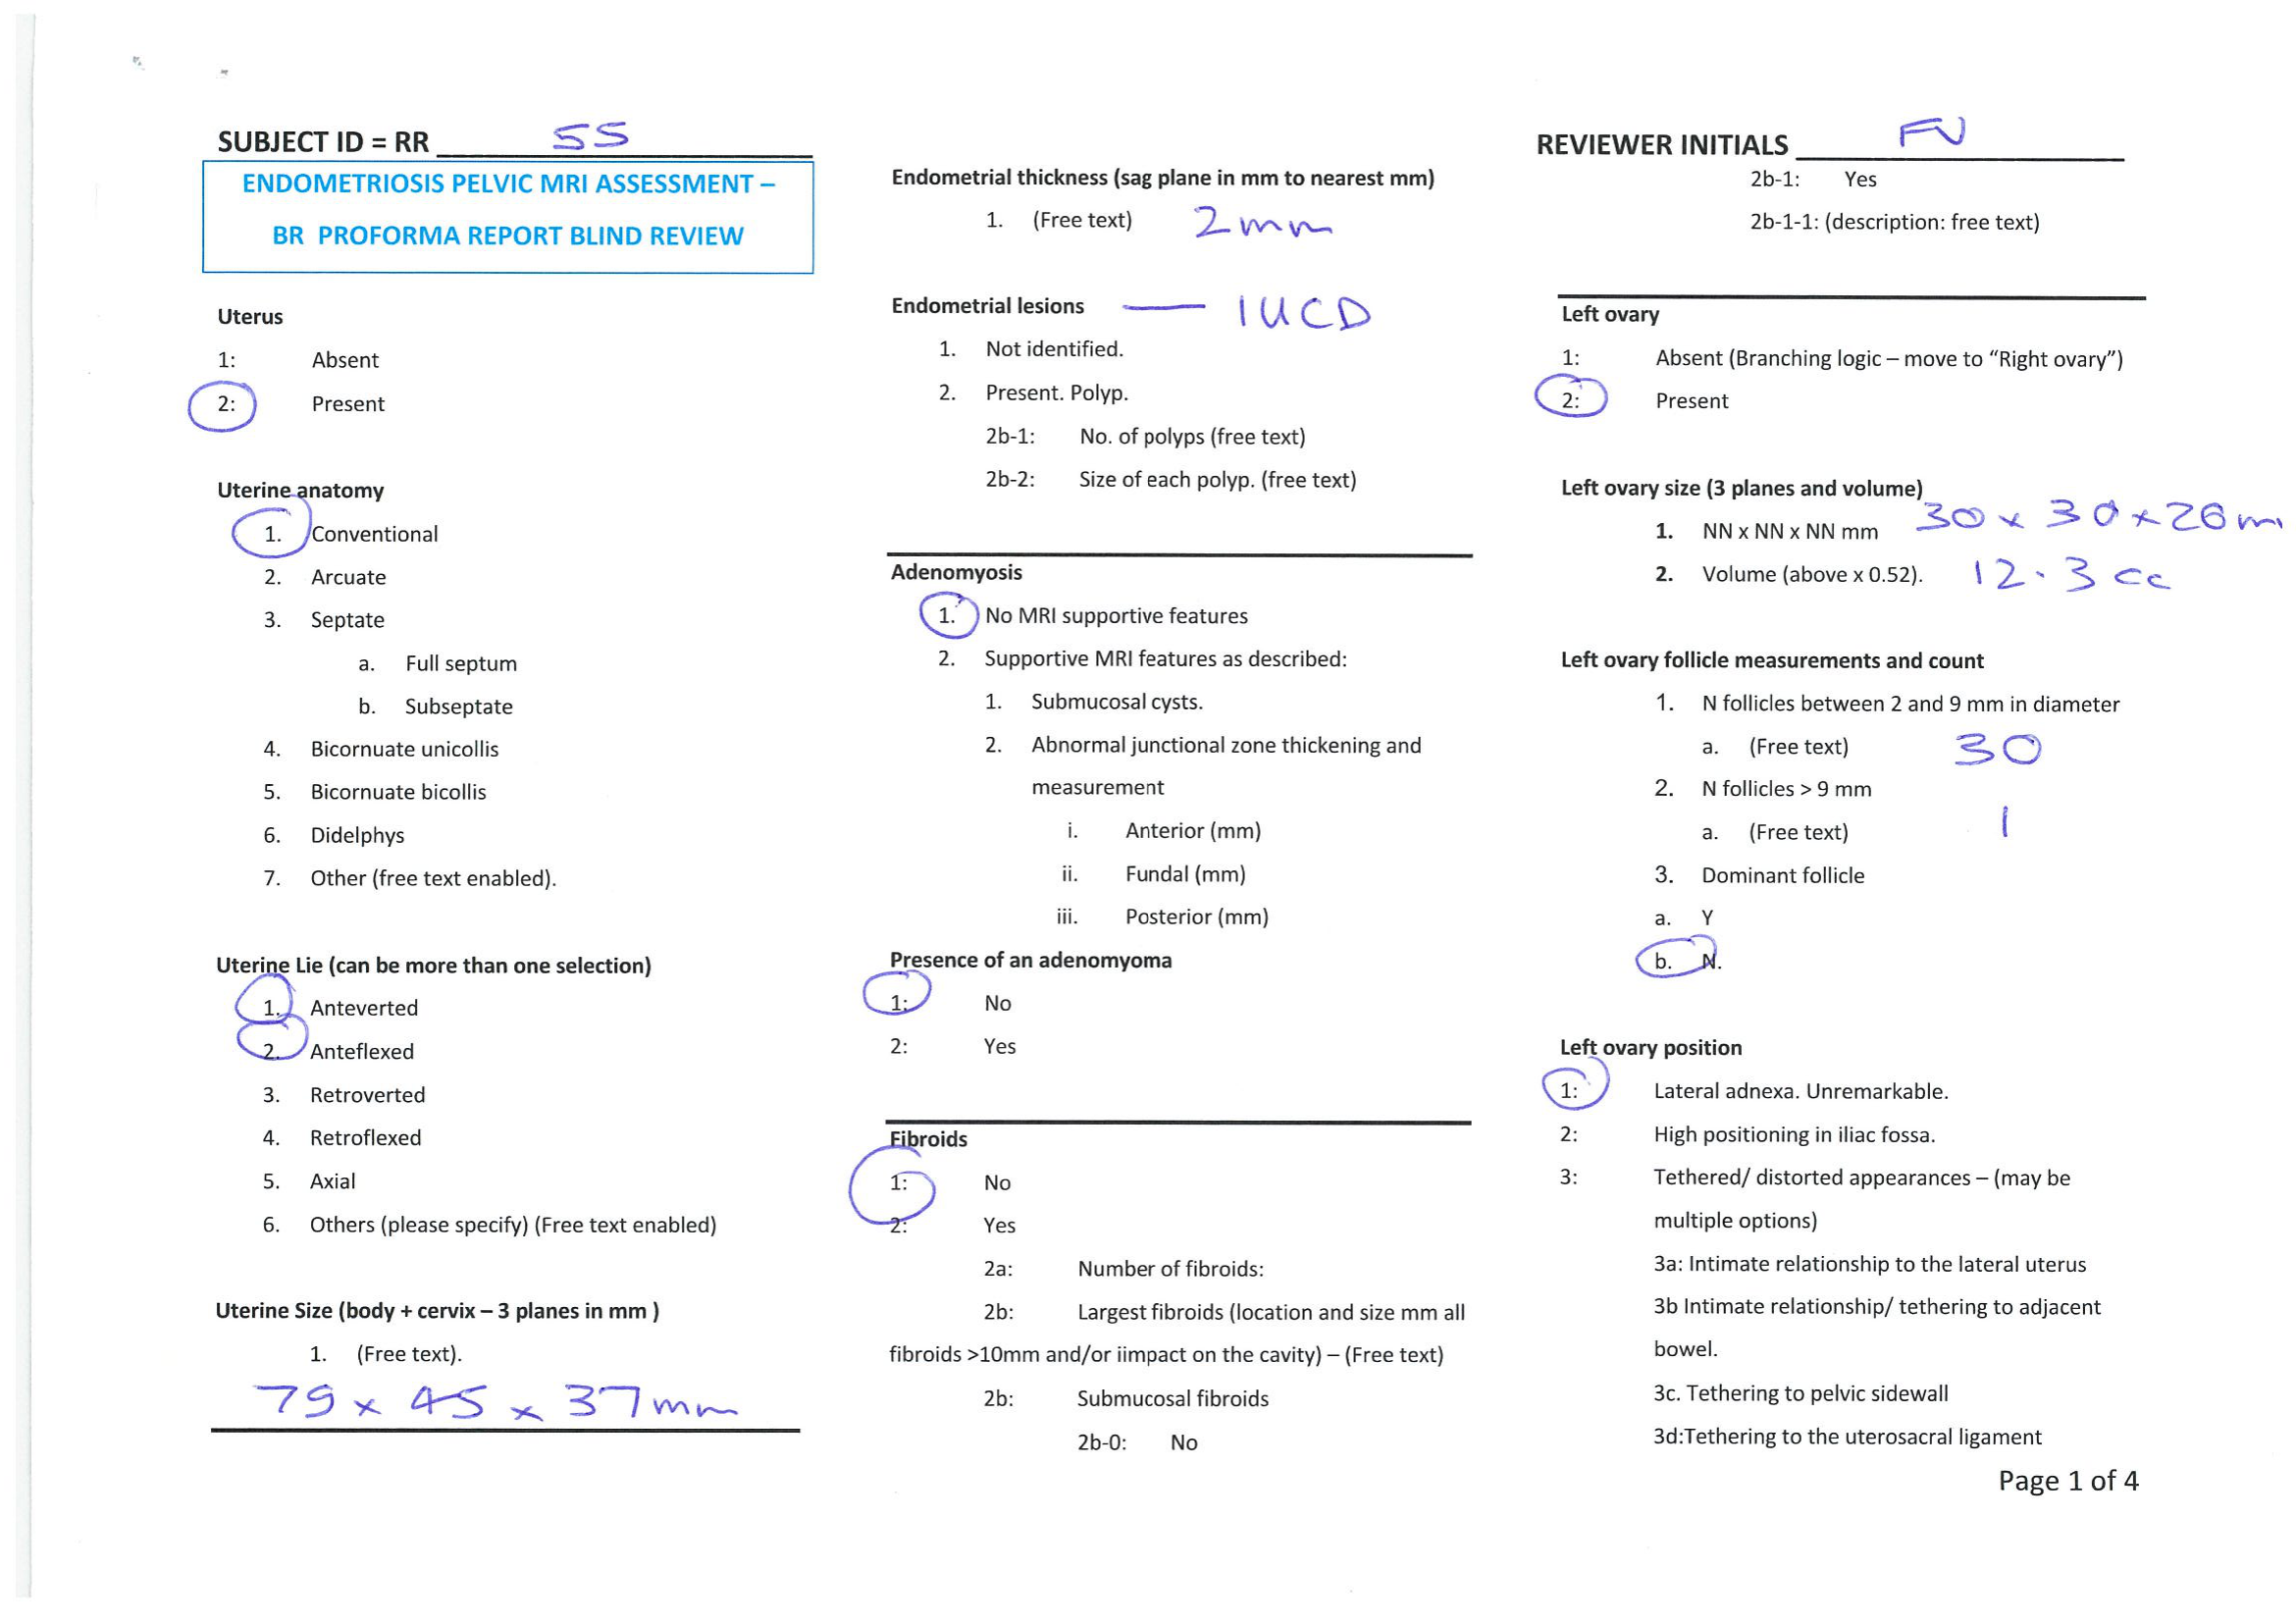 SUBJECT ID = RR 55
ENDOMETRIOSIS PELVIC MRI ASSESSMENT –
BR PROFORMA REPORT BLIND REVIEW
Uterus
1: Absent
2: Present
Uterine anatomy
1. Conventional
2. Arcuate
3. Septate
a. Full septum
b. Subseptate
4. Bicornuate unicollis
5. Bicornuate bicollis
6. Didelphys
7. Other (free text enabled).
Uterine Lie (can be more than one selection)
1. Anteverted
2. Anteflexed
3. Retroverted
4. Retroflexed
5. Axial
6. Others (please specify) (Free text enabled)
Uterine Size (body + cervix – 3 planes in mm )
1. (Free text).
79 x 45 x 37mm
Endometrial thickness (sag plane in mm to nearest mm)
1. (Free text) 2mm
Endometrial lesions — IUCD
1. Not identified.
2. Present. Polyp.
2b-1: No. of polyps (free text)
2b-2: Size of each polyp. (free text)
Adenomyosis
1. No MRI supportive features
2. Supportive MRI features as described:
1. Submucosal cysts.
2. Abnormal junctional zone thickening and
measurement
i. Anterior (mm)
ii. Fundal (mm)
iii. Posterior (mm)
Presence of an adenomyoma
1: No
2: Yes
Fibroids
1: No
2: Yes
2a: Number of fibroids:
2b: Largest fibroids (location and size mm all
fibroids >10mm and/or iimpact on the cavity) – (Free text)
2b: Submucosal fibroids
2b-0: No
REVIEWER INITIALS FV
2b-1: Yes
2b-1-1: (description: free text)
Left ovary
1: Absent (Branching logic – move to “Right ovary”)
2: Present
Left ovary size (3 planes and volume)
1. NN x NN x NN mm 30 x 30 x 26m
2. Volume (above x 0.52). 12.3 cc
Left ovary follicle measurements and count
1. N follicles between 2 and 9 mm in diameter
a. (Free text) 30
2. N follicles > 9 mm
a. (Free text) 1
3. Dominant follicle
a. Y
b. N.
Left ovary position
1: Lateral adnexa. Unremarkable.
2: High positioning in iliac fossa.
3: Tethered/ distorted appearances – (may be
multiple options)
3a: Intimate relationship to the lateral uterus
3b Intimate relationship/ tethering to adjacent
bowel.
3c. Tethering to pelvic sidewall
3d:Tethering to the uterosacral ligament
Page 1 of 4